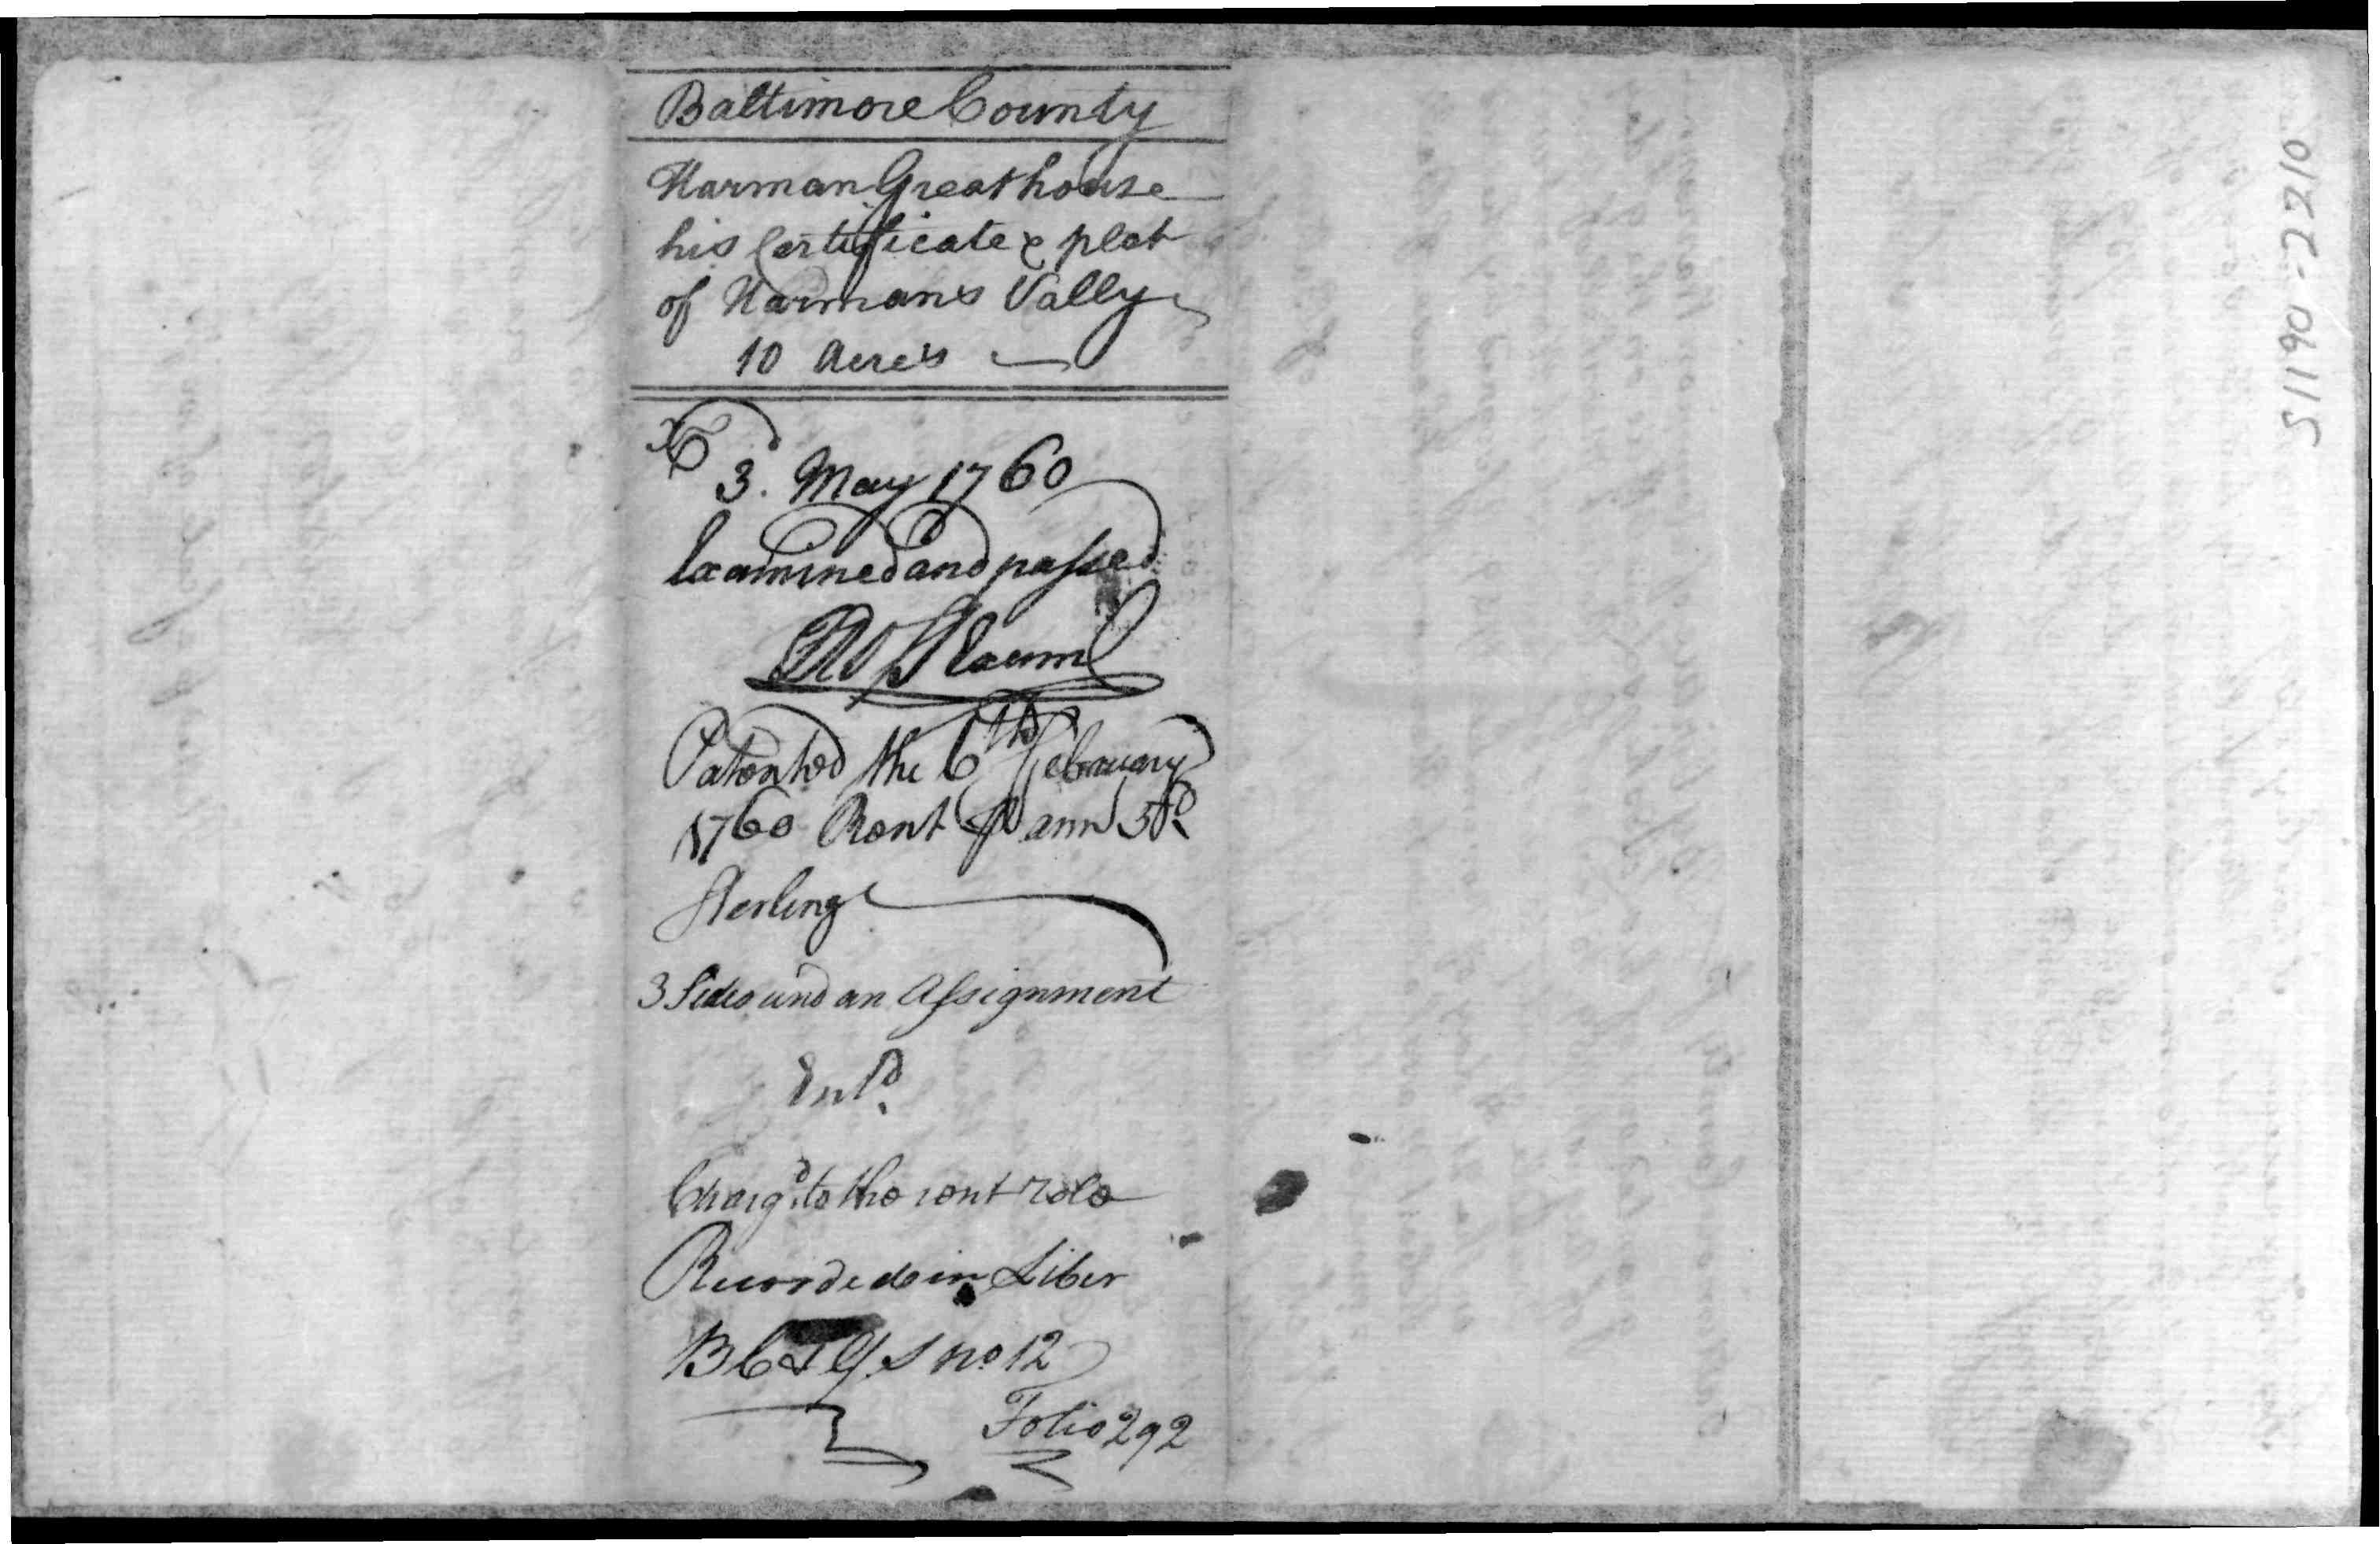 Baltimore County
Harman Greathouse
his Certificate & plat
of Harmans Vally
10 Acres
3. May 1760
Examined and passed
Patented the 6th February
1760 Rent ⅌ ann 5d
Sterling
3 Sides and an Assignment
Entd.
Chargd. to the rent role
Recorded in Liber
BC & GS no 12
Folio 292
S1190-2210